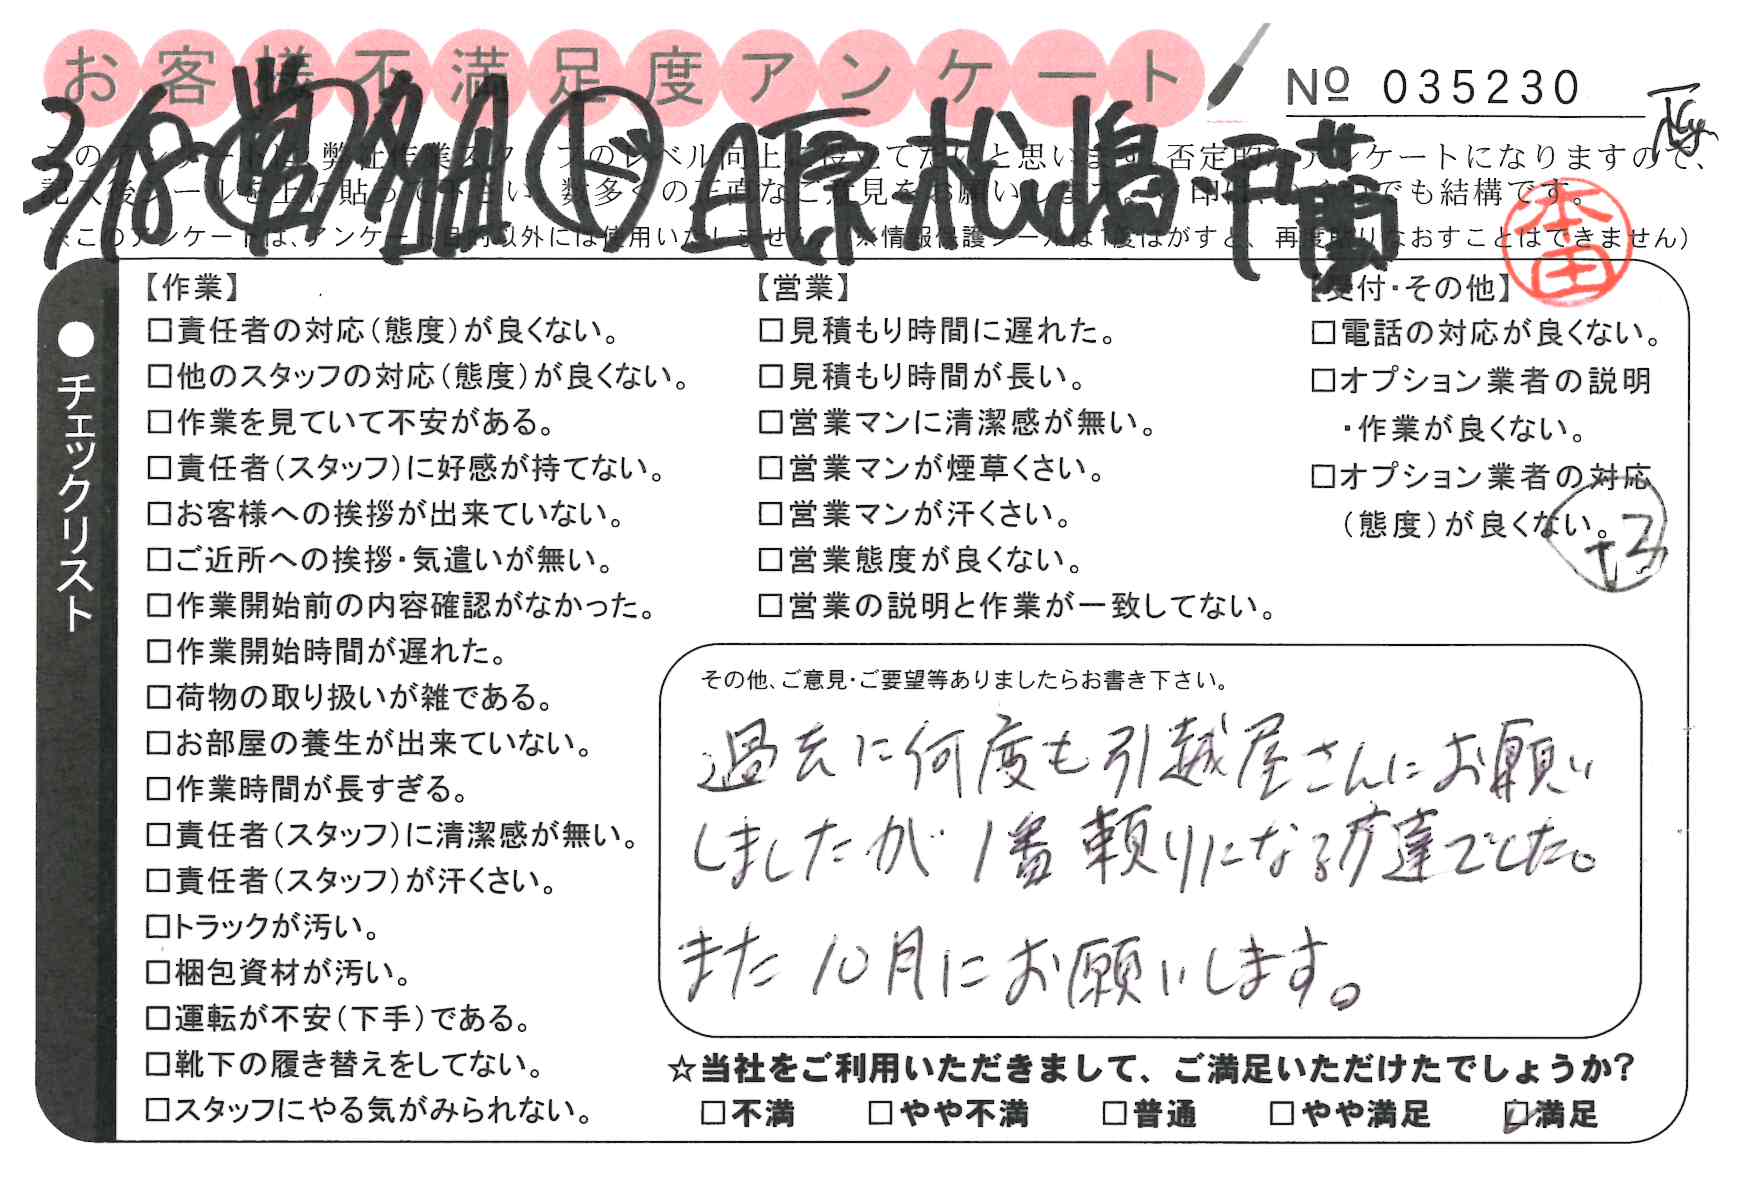 お客様不満足度アンケート
No 035230
3/18
このアンケートは、弊社作業スタッフのレベル向上に役立てたいと思います。否定的なアンケートになりますので、
記入後シールを上に貼って下さい。数多くの正直なご意見をお願いします。
※このアンケートは、アンケート目的以外には使用いたしません。(※情報保護シールは1度はがすと、再度貼りなおすことはできません)
本田
●チェックリスト
【作業】
□責任者の対応(態度)が良くない。
□他のスタッフの対応(態度)が良くない。
□作業を見ていて不安がある。
□責任者(スタッフ)に好感が持てない。
□お客様への挨拶が出来ていない。
□ご近所への挨拶・気遣いが無い。
□作業開始前の内容確認がなかった。
□作業開始時間が遅れた。
□荷物の取り扱いが雑である。
□お部屋の養生が出来ていない。
□作業時間が長すぎる。
□責任者(スタッフ)に清潔感が無い。
□責任者(スタッフ)が汗くさい。
□トラックが汚い。
□梱包資材が汚い。
□運転が不安(下手)である。
□靴下の履き替えをしてない。
□スタッフにやる気がみられない。
【営業】
□見積もり時間に遅れた。
□見積もり時間が長い。
□営業マンに清潔感が無い。
□営業マンが煙草くさい。
□営業マンが汗くさい。
□営業態度が良くない。
□営業の説明と作業が一致してない。
【受付・その他】
□電話の対応が良くない。
□オプション業者の説明
・作業が良くない。
□オプション業者の対応
(態度)が良くない。
その他、ご意見・ご要望等ありましたらお書き下さい。
過去に何度も引越屋さんにお願い
しましたが 1番 頼りになる方達でした。
また 10月にお願いします。
☆当社をご利用いただきまして、ご満足いただけたでしょうか?
□不満 □やや不満 □普通 □やや満足 □満足